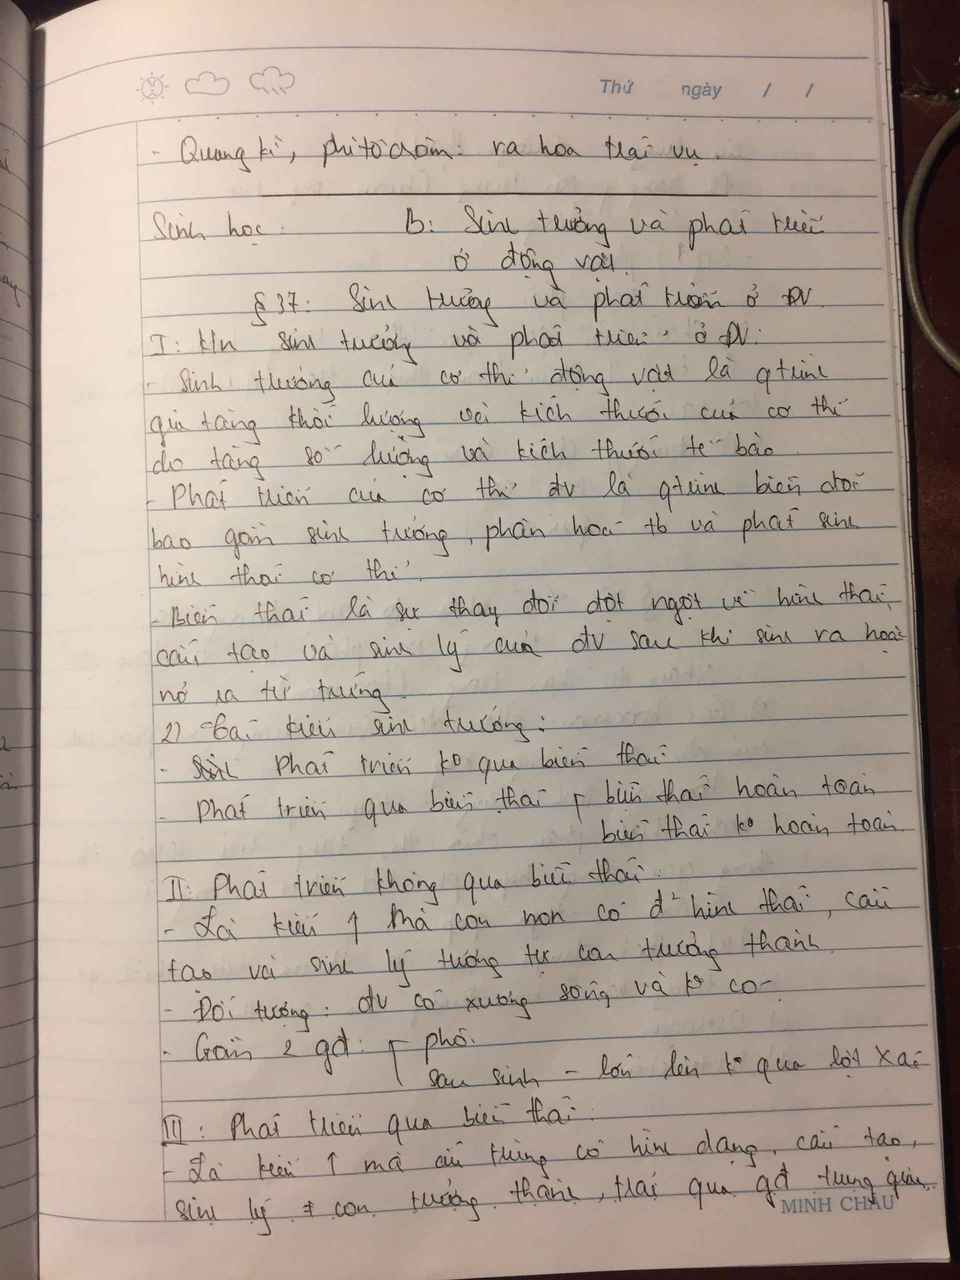 Thứ ngày / /
- Quang kì, phitôcrôm: ra hoa trái vụ.
Sinh học: B: Sinh trưởng và phát triển
ở động vật.
§ 37: Sinh trưởng và phát triển ở ĐV.
I: KN sinh trưởng và phát triển ở ĐV:
- Sinh trưởng của cơ thể động vật là qtrình
gia tăng khối lượng và kích thước của cơ thể
do tăng số lượng và kích thước tế bào.
- Phát triển của cơ thể đv là qtrình biến đổi
bao gồm sinh trưởng, phân hoá tb và phát sinh
hình thái cơ thể.
- Biến thái là sự thay đổi đột ngột về hình thái,
cấu tạo và sinh lý của đv sau khi sinh ra hoặc
nở ra từ trứng.
2) Các kiểu sinh trưởng:
- Phát triển ko qua biến thái
- Phát triển qua biến thái biến thái hoàn toàn
biến thái ko hoàn toàn
II: Phát triển không qua biến thái.
- Là kiểu ↑ mà con non có đ² hình thái, cấu
tạo và sinh lý tương tự con trưởng thành.
- Đối tượng: đv có xương sống và ko có
- Gồm 2 gđ: phôi
sau sinh - lớn lên ko qua lột xác
III: Phát triển qua biến thái.
- Là kiểu ↑ mà ấu trùng có hình dạng, cấu tạo,
sinh lý ≠ con trưởng thành, trải qua gđ trung gian.
MINH CHÂU